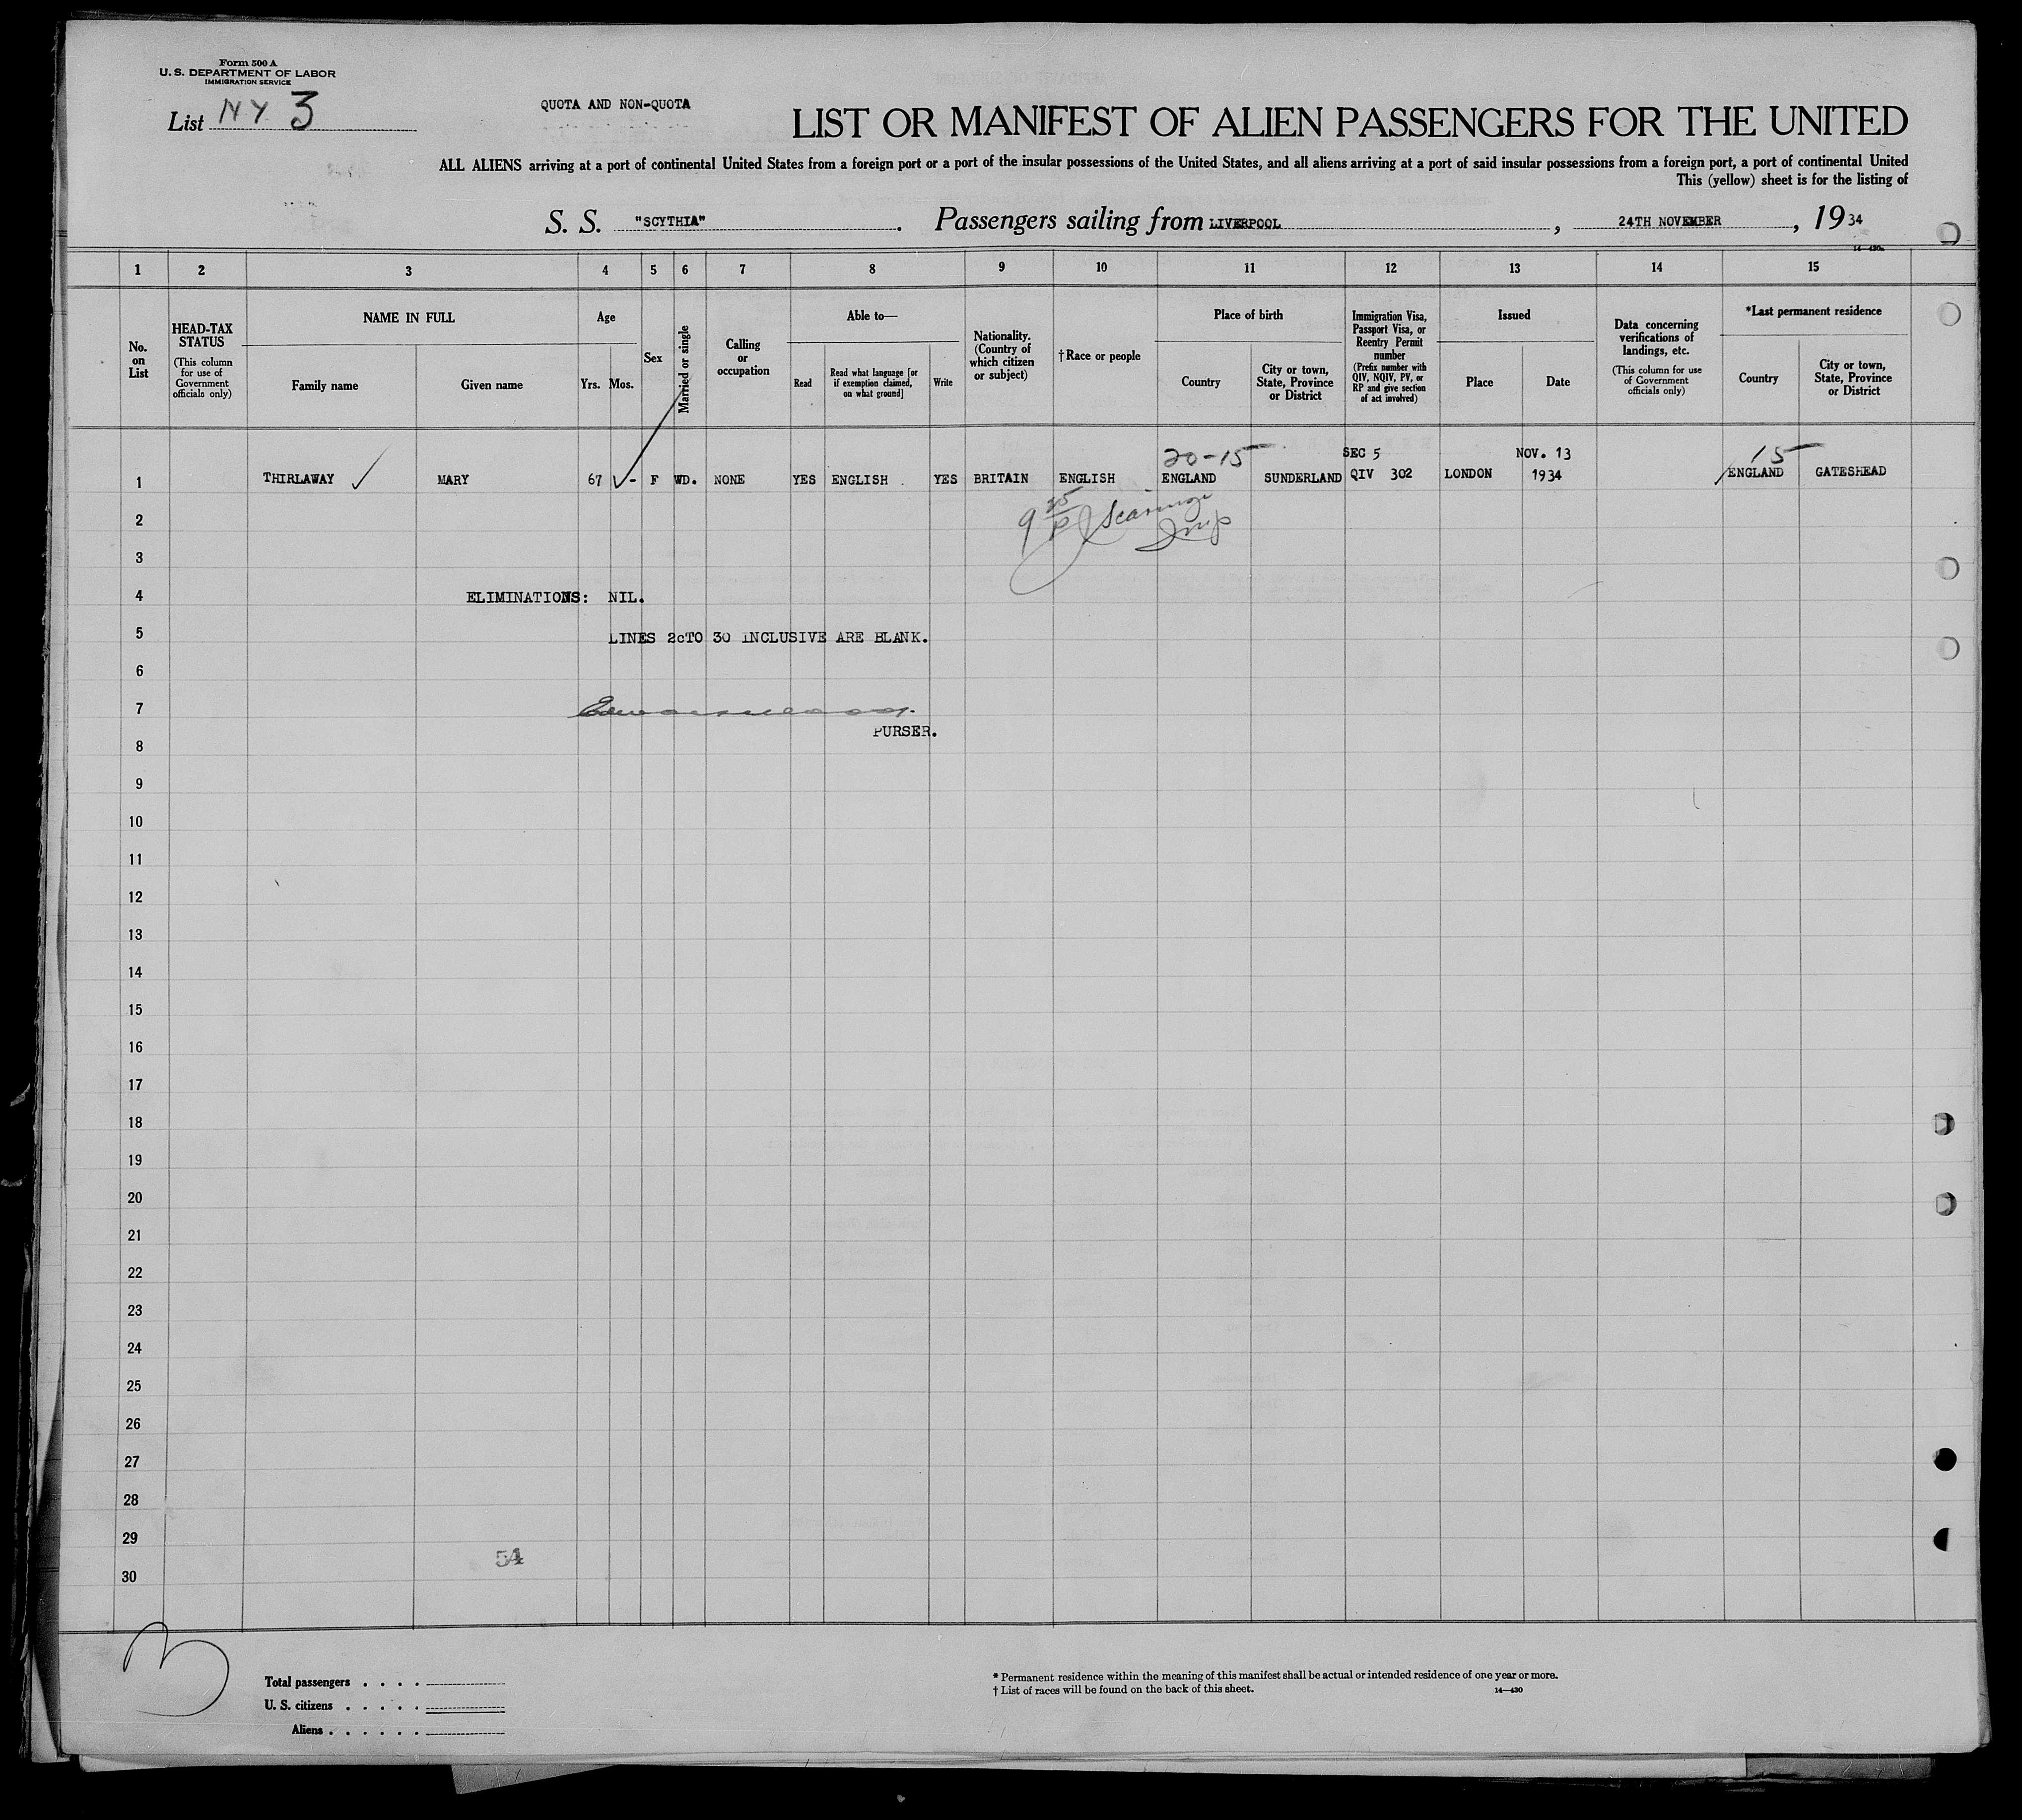 Form 500 A
U. S. DEPARTMENT OF LABOR
IMMIGRATION SERVICE
List NY 3
QUOTA AND NON-QUOTA
LIST OR MANIFEST OF ALIEN PASSENGERS FOR THE UNITED
ALL ALIENS arriving at a port of continental United States from a foreign port or a port of the insular possessions of the United States, and all aliens arriving at a port of said insular possessions from a foreign port, a port of continental United
This (yellow) sheet is for the listing of
S. S. "SCYTHIA". Passengers sailing from LIVERPOOL, 24TH NOVEMBER, 1934
1 2 3 4 5 6 7 8 9 10 11 12 13 14 15
No. on List
HEAD-TAX STATUS
(This column for use of Government officials only)
NAME IN FULL
Family name
Given name
Age
Yrs. Mos.
Sex
Married or single
Calling or occupation
Able to—
Read
Read what language [or if exemption claimed, on what ground]
Write
Nationality. (Country of which citizen or subject)
†Race or people
Place of birth
Country
City or town, State, Province or District
Immigration Visa, Passport Visa, or Reentry Permit number
(Prefix number with QIV, NQIV, PV, or RP and give section of act involved)
Issued
Place
Date
Data concerning verifications of landings, etc.
(This column for use of Government officials only)
*Last permanent residence
Country
City or town, State, Province or District
20-15 SEC 5 NOV. 13 15
1 THIRLAWAY MARY 67 - F WD. NONE YES ENGLISH YES BRITAIN ENGLISH ENGLAND SUNDERLAND QIV 302 LONDON 1934 ENGLAND GATESHEAD
2
3
4 ELIMINATIONS: NIL.
5 LINES 2 TO 30 INCLUSIVE ARE BLANK.
6
7
PURSER.
8
9
10
11
12
13
14
15
16
17
18
19
20
21
22
23
24
25
26
27
28
29
54
30
3
Total passengers . . . .
U. S. citizens . . . . .
Aliens . . . . . .
* Permanent residence within the meaning of this manifest shall be actual or intended residence of one year or more.
† List of races will be found on the back of this sheet.
14—430